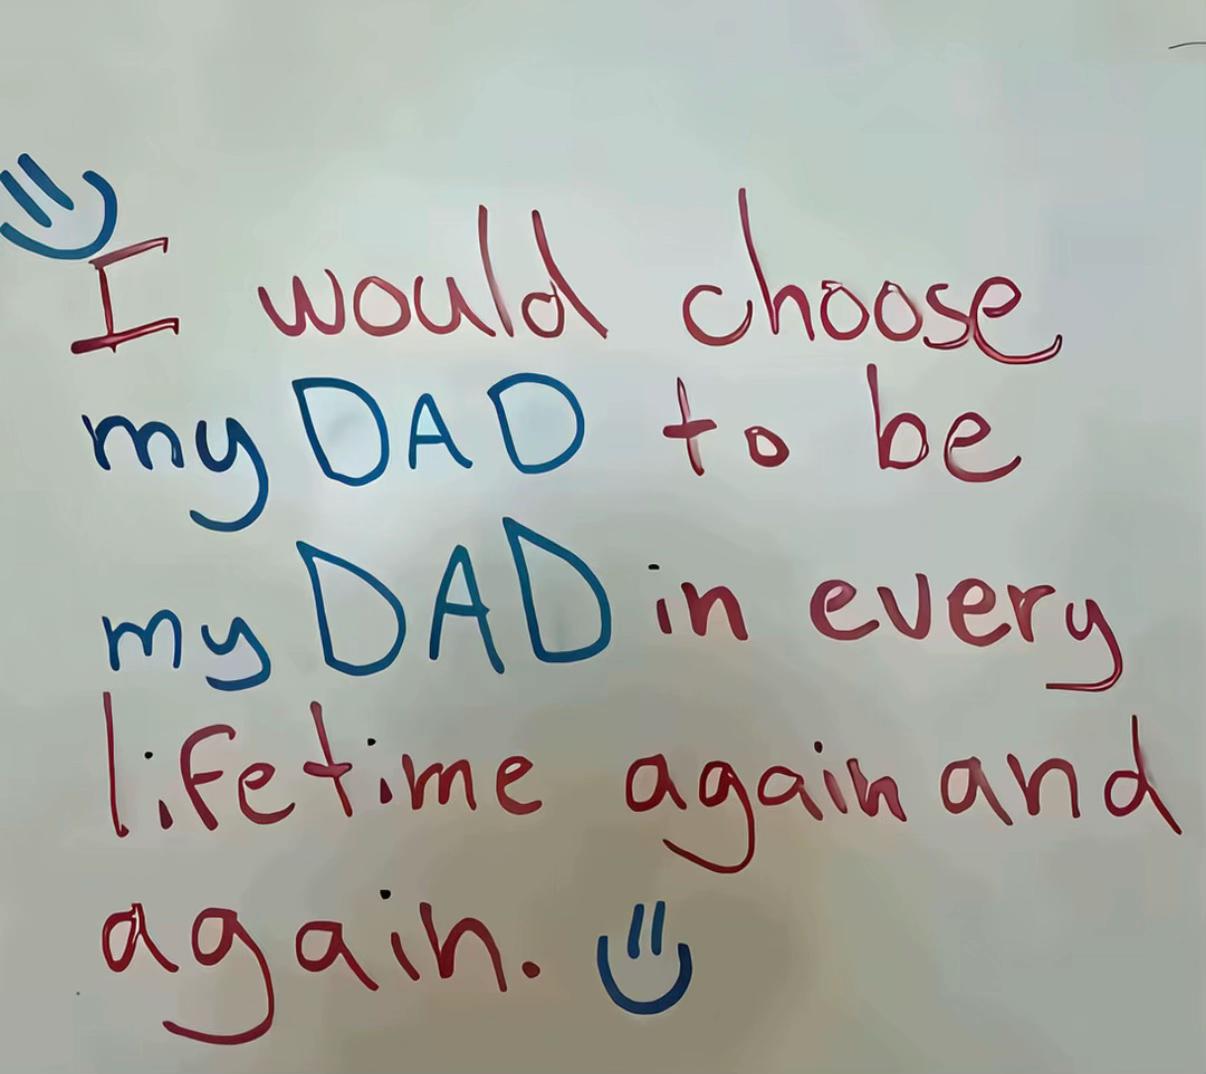 I would choose
my DAD to be
my DAD in every
lifetime again and
again.